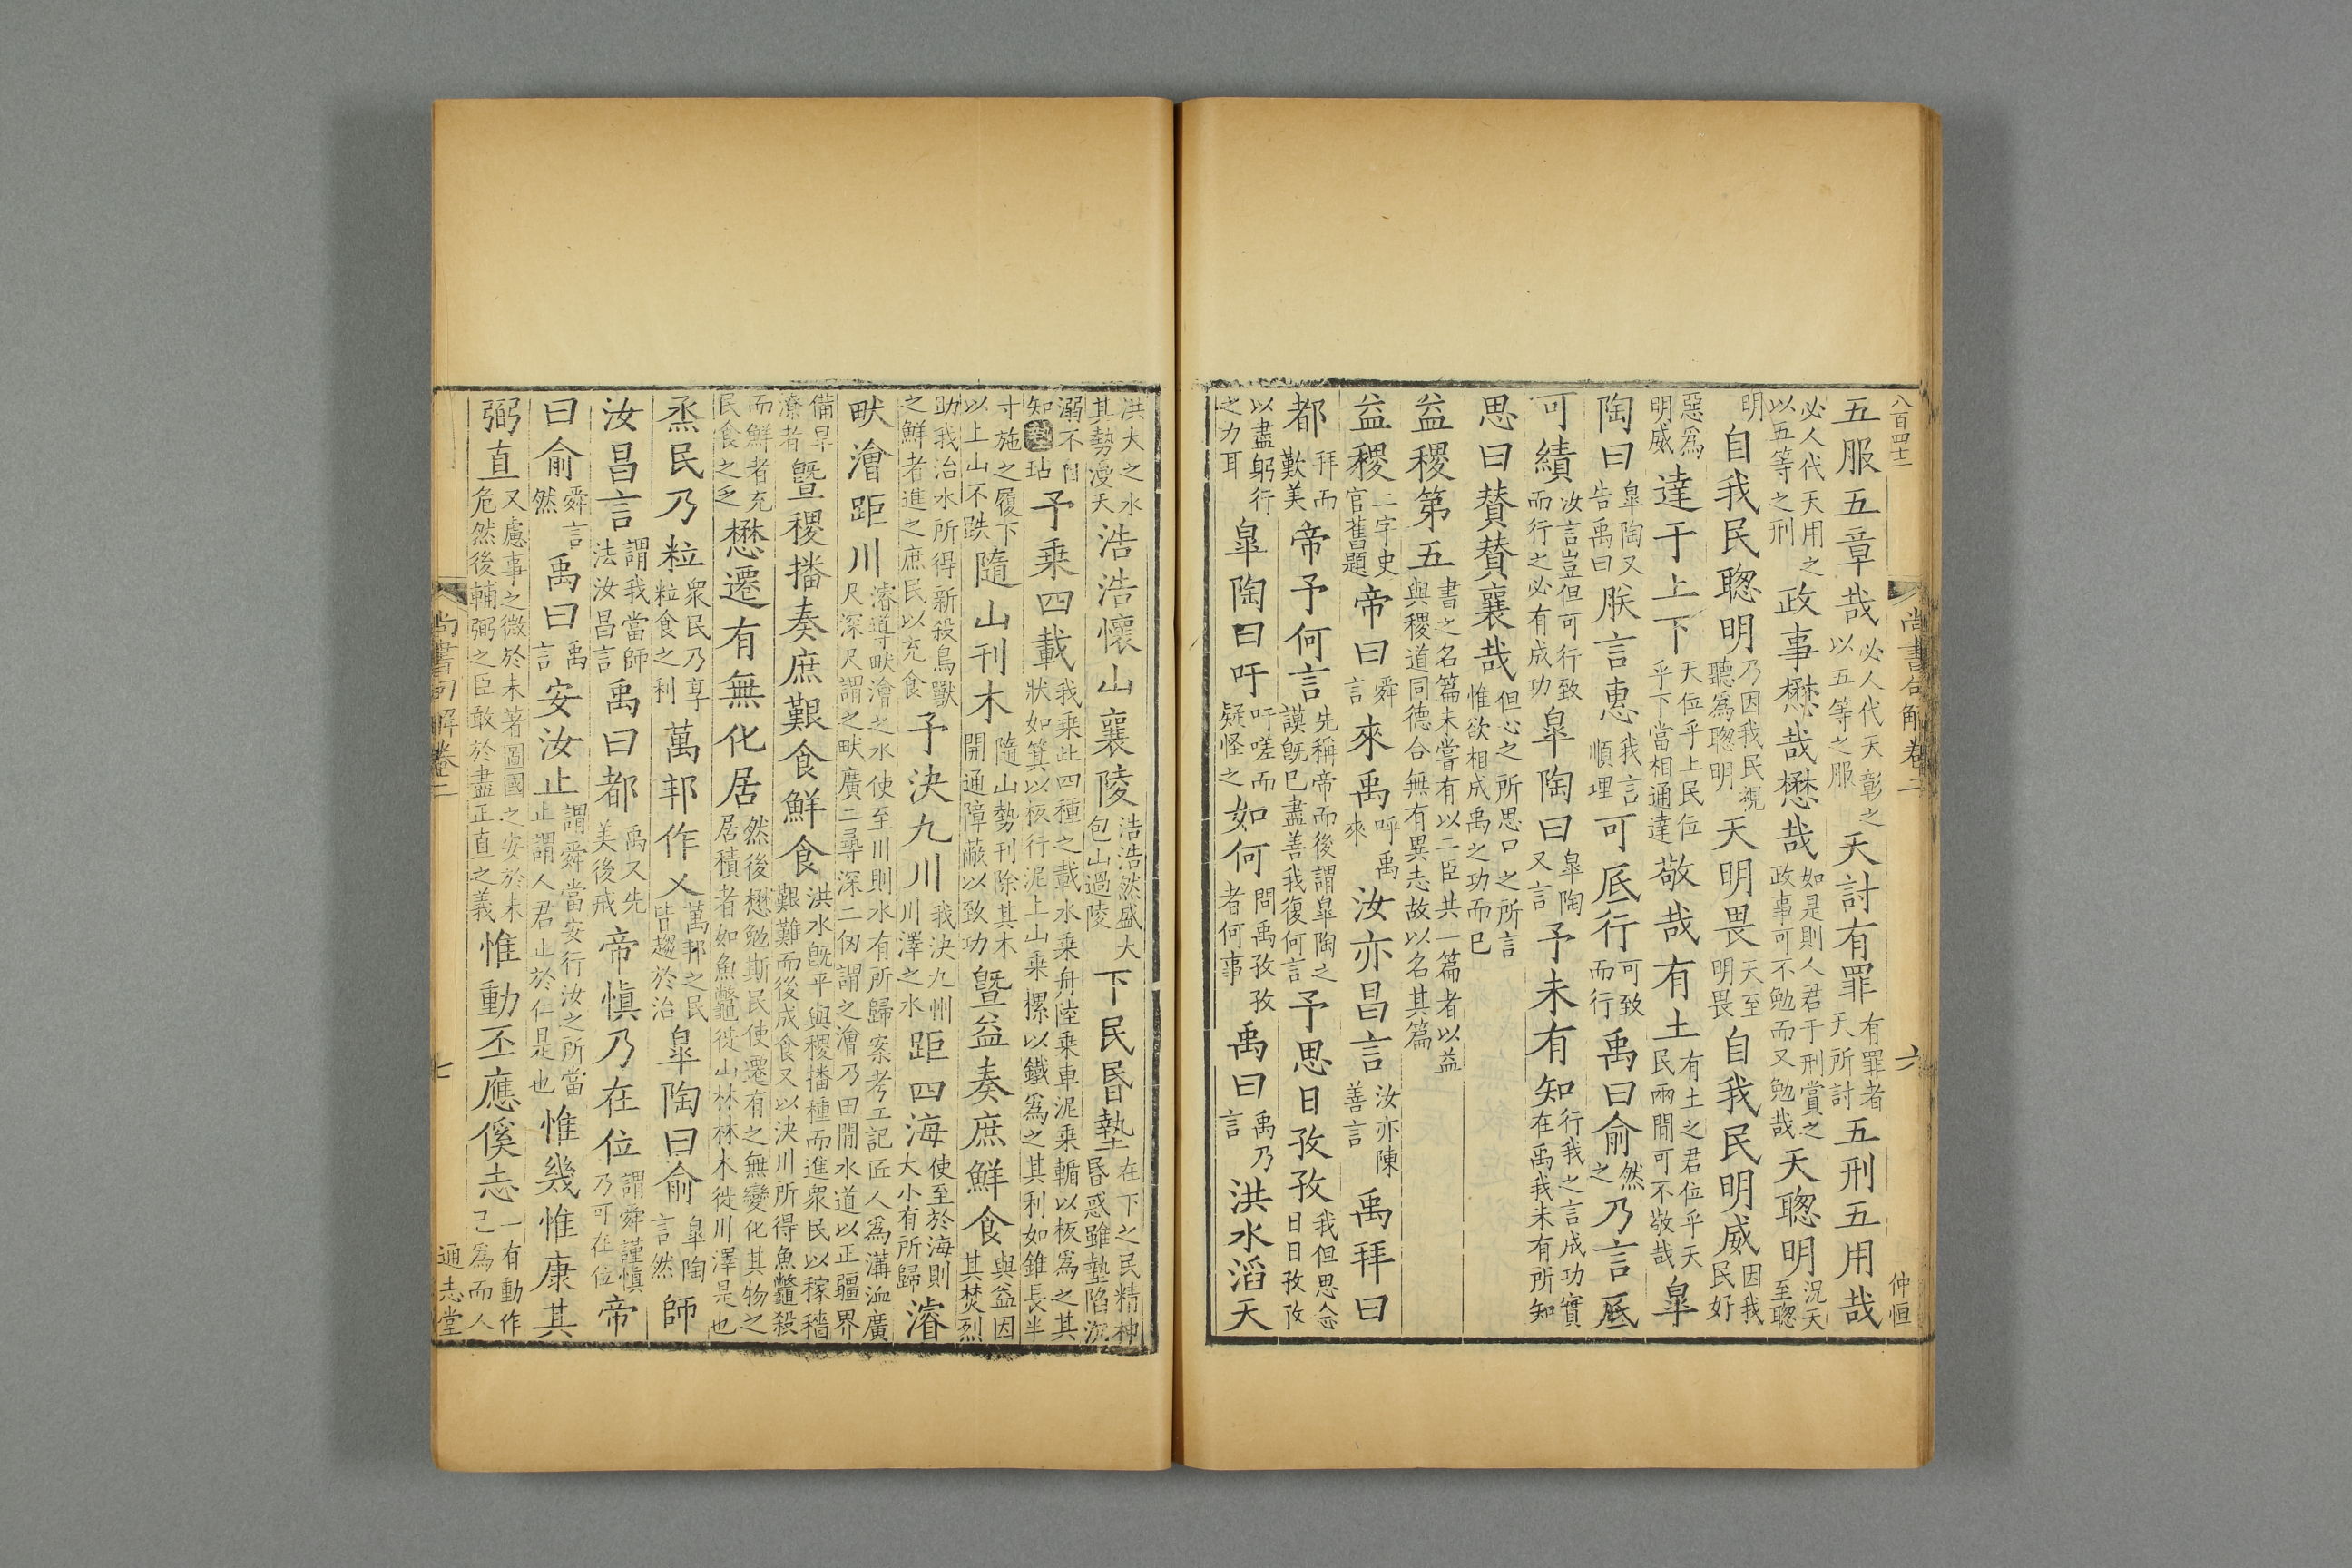 八百四十二
尚書句解卷二
六
仲恒
五服五章哉必人代天彰之以五等之服天討有罪有罪者天所討五刑五用哉
必人代天用之以五等之刑政事懋哉懋哉如是則人君于刑賞之政事可不勉而又勉哉天聰明況天至聰
明自我民聰明乃因我民視聽爲聰明天明畏天至明畏自我民明威因我民好
惡爲明威達于上下天位乎上民位乎下當相通達敬哉有土有土之君位乎天民兩間可不敬哉皐
陶曰皐陶又告禹曰朕言惠我言順理可厎行可致而行禹曰俞然之乃言厎
可績汝言豈但可行致而行之必有成功皐陶曰皐陶又言予未有知行我之言成功實在禹我未有所知
思曰贊贊襄哉但心之所思口之所言惟欲相成禹之功而已
益稷第五書之名篇未嘗有以二臣共一篇者以益與稷道同德合無有異志故以名其篇
益稷二字史官舊題帝曰舜言來禹呼禹來汝亦昌言汝亦陳善言禹拜曰
都拜而歎美帝予何言先稱帝而後謂皐陶之謨旣已盡善我復何言予思日孜孜我但思念日日孜孜
以盡躬行之力耳皐陶曰吁吁嗟而疑怪之如何問禹孜孜者何事禹曰禹乃言洪水滔天
洪大之水其勢漫天浩浩懷山襄陵浩浩然盛大包山過陵下民昬墊在下之民精神昬惑雖墊陷沉
溺不自知墊玷予乘四載我乘此四種之載水乘舟陸乘車泥乘輴以板爲之其狀如箕以板行泥上山乘樏以鐵爲之其利如錐長半
寸施之履下以上山不跌隨山刊木隨山勢刊除其木開通障蔽以致功曁益奏庶鮮食與益因其焚烈
助我治水所得新殺鳥獸之鮮者進之庶民以充食予決九川我決九州川澤之水距四海使至於海則大小有所歸濬
畎澮距川濬導畎澮之水使至川則水有所歸案考工記匠人爲溝洫廣尺深尺謂之畎廣二尋深二仞謂之澮乃田間水道以正疆界
備旱潦者曁稷播奏庶艱食鮮食洪水旣平與稷播種而進衆民以稼穡艱難而後成食又以決川所得魚鼈殺
而鮮者充民食之乏懋遷有無化居然後懋勉斯民使遷有之無變化其物之居積者如魚鼈徙山林林木徙川澤是也
烝民乃粒衆民乃享粒食之利萬邦作乂萬邦之民皆趨於治皐陶曰俞皐陶言然師
汝昌言謂我當師法汝昌言禹曰都禹又先美後戒帝愼乃在位謂舜謹愼乃可在位帝
曰俞舜言然禹曰禹言安汝止謂舜當安行汝之所當止止謂人君止於仁是也惟幾惟康其
弼直又慮事之微於未著圖國之安於未危然後輔弼之臣敢於盡正直之義惟動丕應徯志一有動作己爲而人
尚書句解卷二
七
通志堂